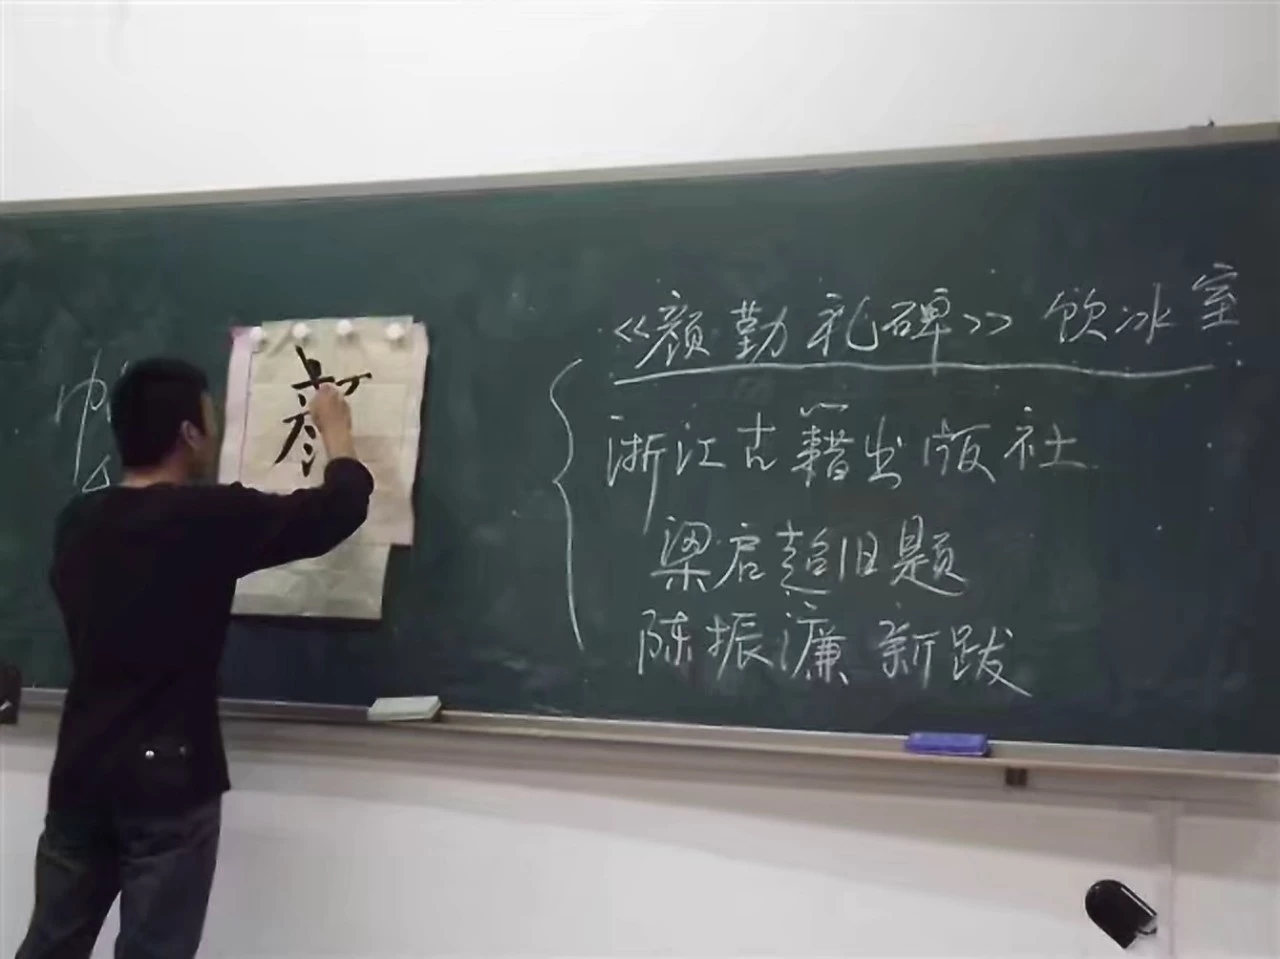 《颜勤礼碑》饮冰室
浙江古籍出版社
梁启超旧题
陈振濂新跋